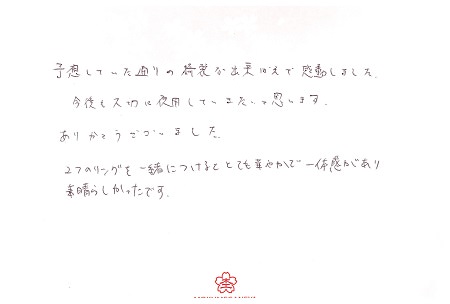 予想していた通りの綺麗な出来ばえで感動しました。
今後も大切に使用していきたいと思います。
ありがとうございました。
2つのリングを一緒につけるととても華やかで一体感があり
素晴らしかったです。